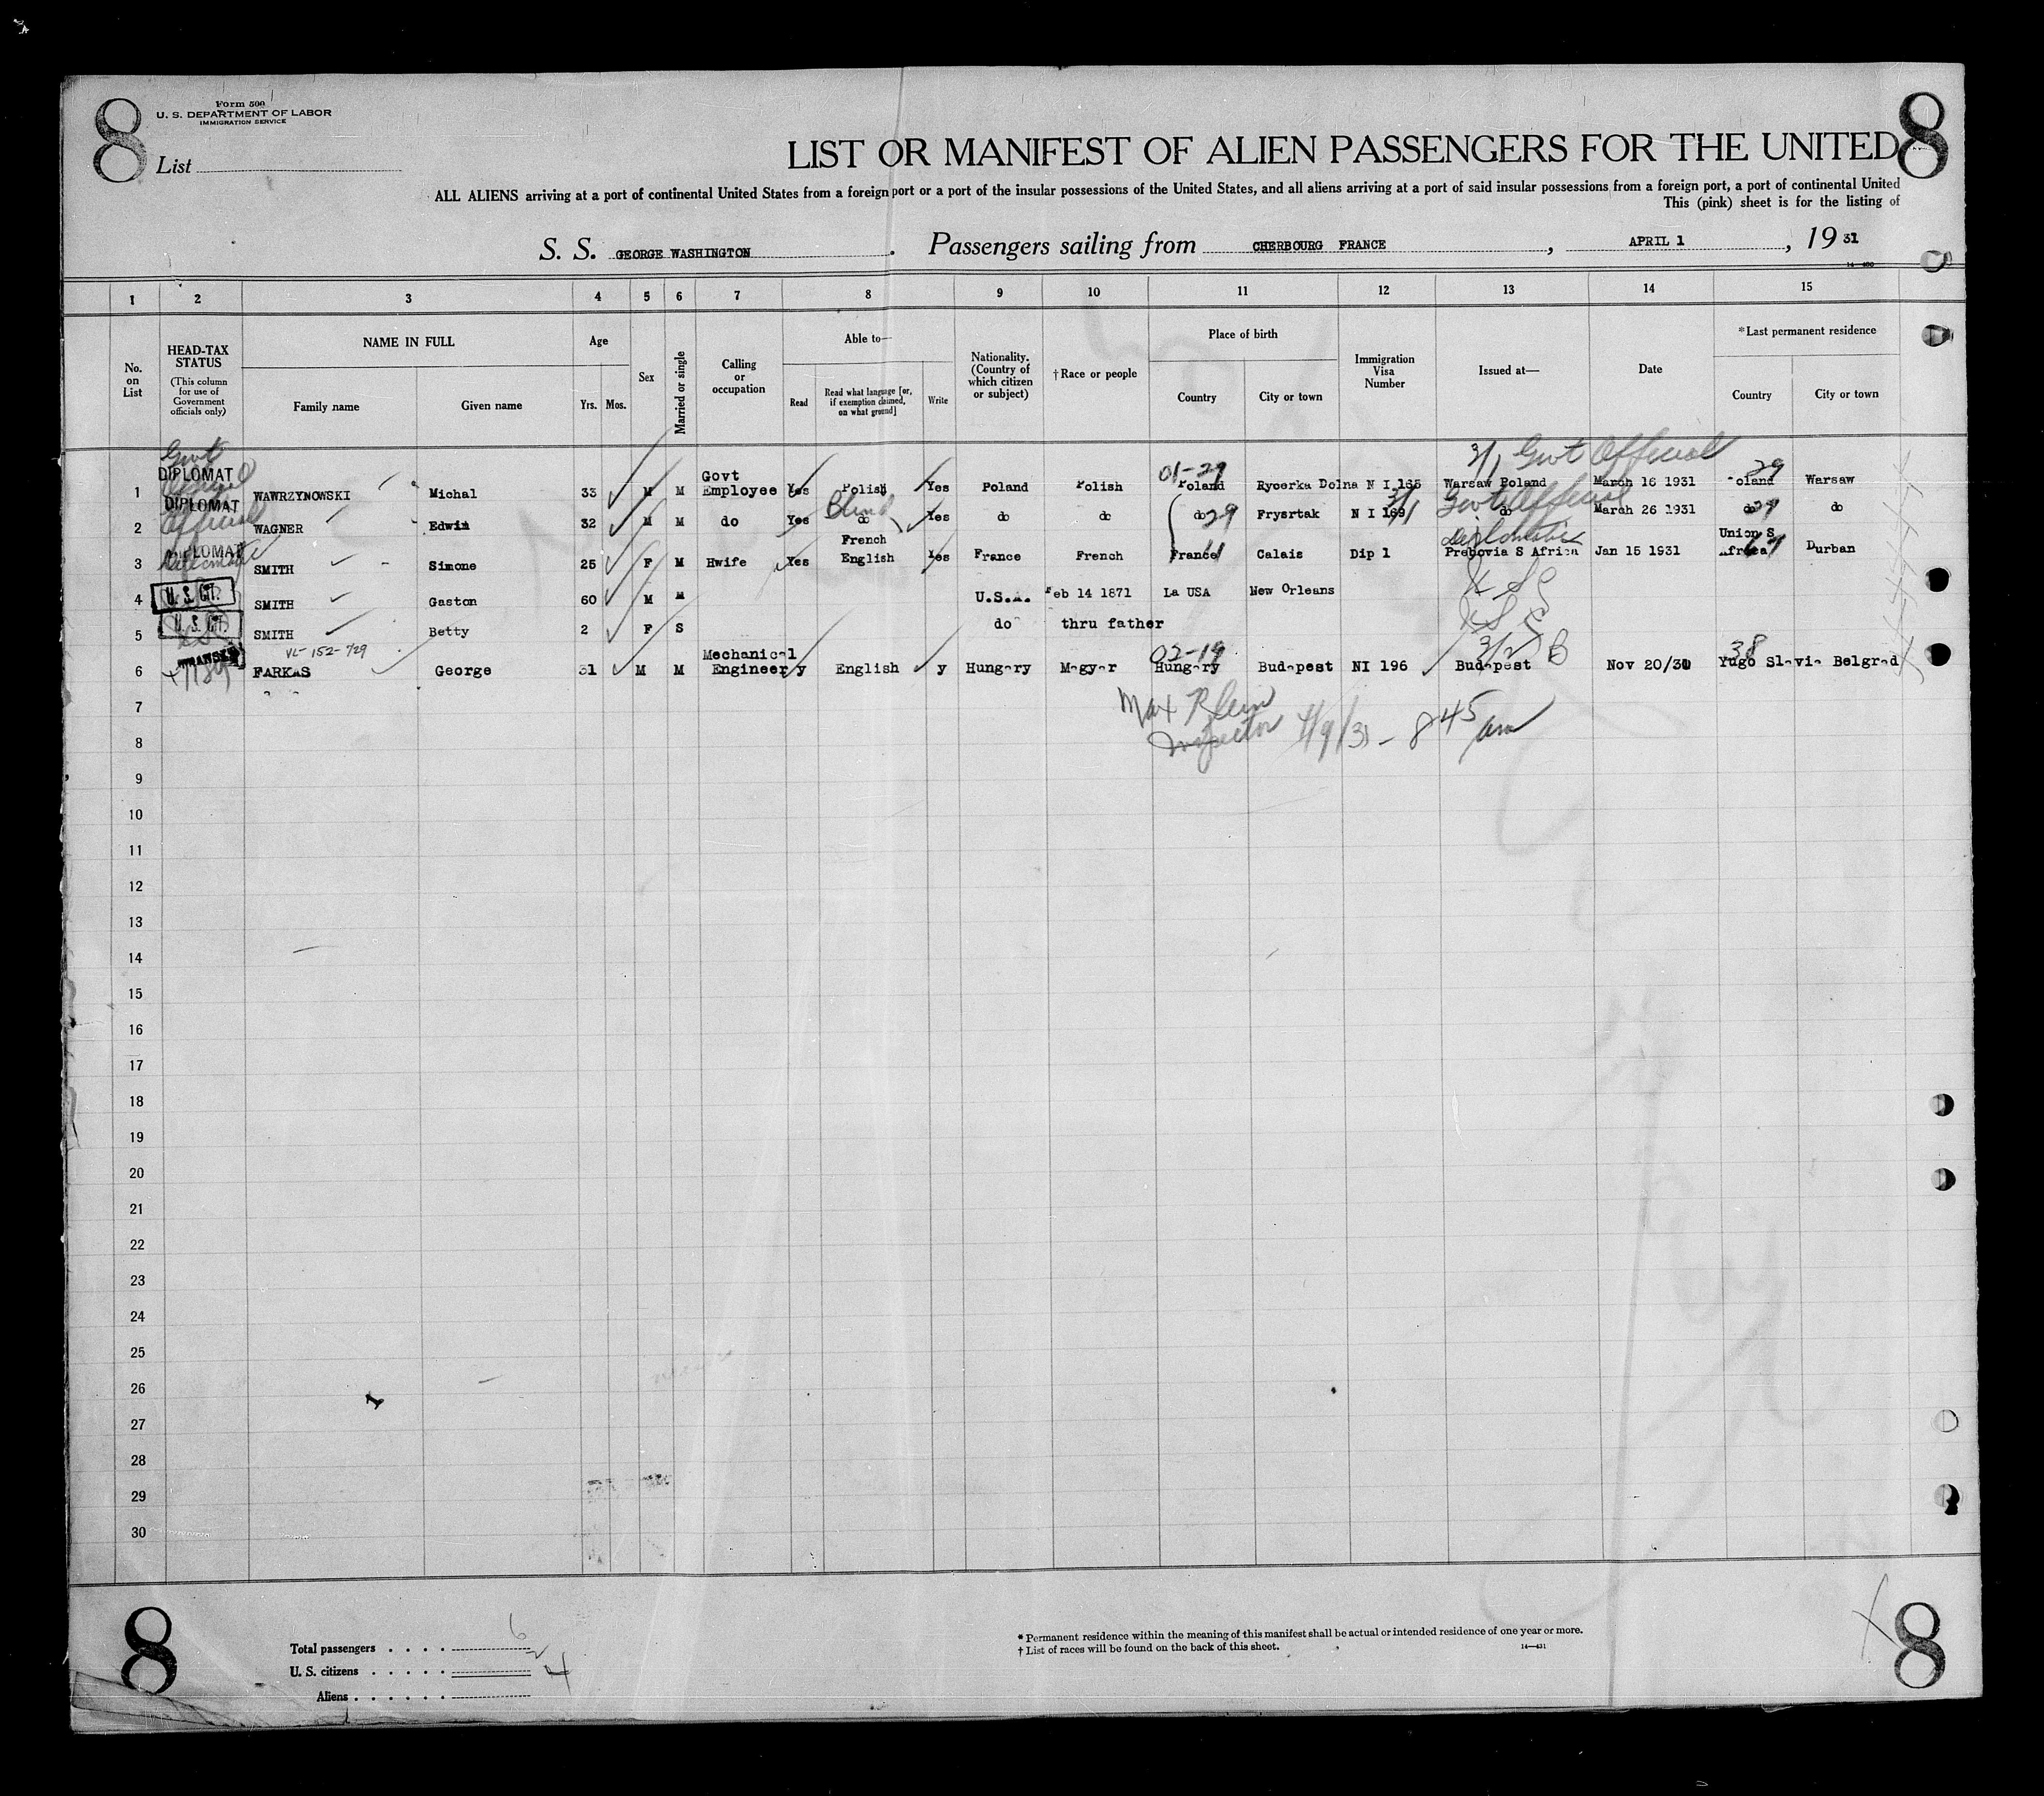 8
Form 500
U. S. DEPARTMENT OF LABOR
IMMIGRATION SERVICE
8
List
LIST OR MANIFEST OF ALIEN PASSENGERS FOR THE UNITED
ALL ALIENS arriving at a port of continental United States from a foreign port or a port of the insular possessions of the United States, and all aliens arriving at a port of said insular possessions from a foreign port, a port of continental United
This (pink) sheet is for the listing of
S. S. GEORGE WASHINGTON. Passengers sailing from CHERBOURG FRANCE, APRIL 1, 19 31
14—430
1 2 3 4 5 6 7 8 9 10 11 12 13 14 15
No. on List
HEAD-TAX STATUS
(This column for use of Government officials only)
NAME IN FULL
Family name
Given name
Age
Yrs.
Mos.
Sex
Married or single
Calling or occupation
Able to—
Read
Read what language [or, if exemption claimed, on what ground]
Write
Nationality. (Country of which citizen or subject)
†Race or people
Place of birth
Country
City or town
Immigration Visa Number
Issued at—
Date
*Last permanent residence
Country
City or town
Govt 3/1 Govt Official
1 DIPLOMAT Official WAWRZYNOWSKI Michal 33 M M Govt Employee Yes Polish Yes Poland Polish 01-29 Poland Rycerka Dolna N I 165 Warsaw Poland March 16 1931 29 Poland Warsaw
2 DIPLOMAT Official WAGNER Edwin 32 M M do Yes do Yes do do do 29 Frysrtak N I 169 3/1 Govt Official do March 26 1931 do 29 do
3 DIPLOMAT Diplomatic SMITH Simone 25 F M Hwife Yes French English Yes France French France 11 Calais Dip 1 Diplomatic Pretovia S Africa Jan 15 1931 Union S Africa 67 Durban
4 U. S. CIT. SMITH Gaston 60 M M U.S.A. Feb 14 1871 La USA New Orleans U S C
5 U. S. CIT. SMITH Betty 2 F S do thru father U S C
VL-152-729
6 TRANSIT FARKAS George 31 M M Mechanical Engineer y English y Hungary Magyar 02-19 Hungary Budapest NI 196 3/2 B Budapest Nov 20/30 38 Yugo Slavia Belgrad
7 Max Klein
8 Inspector 4/9/31 - 8 45 am
9
10
11
12
13
14
15
16
17
18
19
20
21
22
23
24
25
26
27
28
29
30
8
Total passengers . . . . 6
U. S. citizens . . . . . 2
Aliens . . . . . . 4
* Permanent residence within the meaning of this manifest shall be actual or intended residence of one year or more.
† List of races will be found on the back of this sheet.
14—431
8